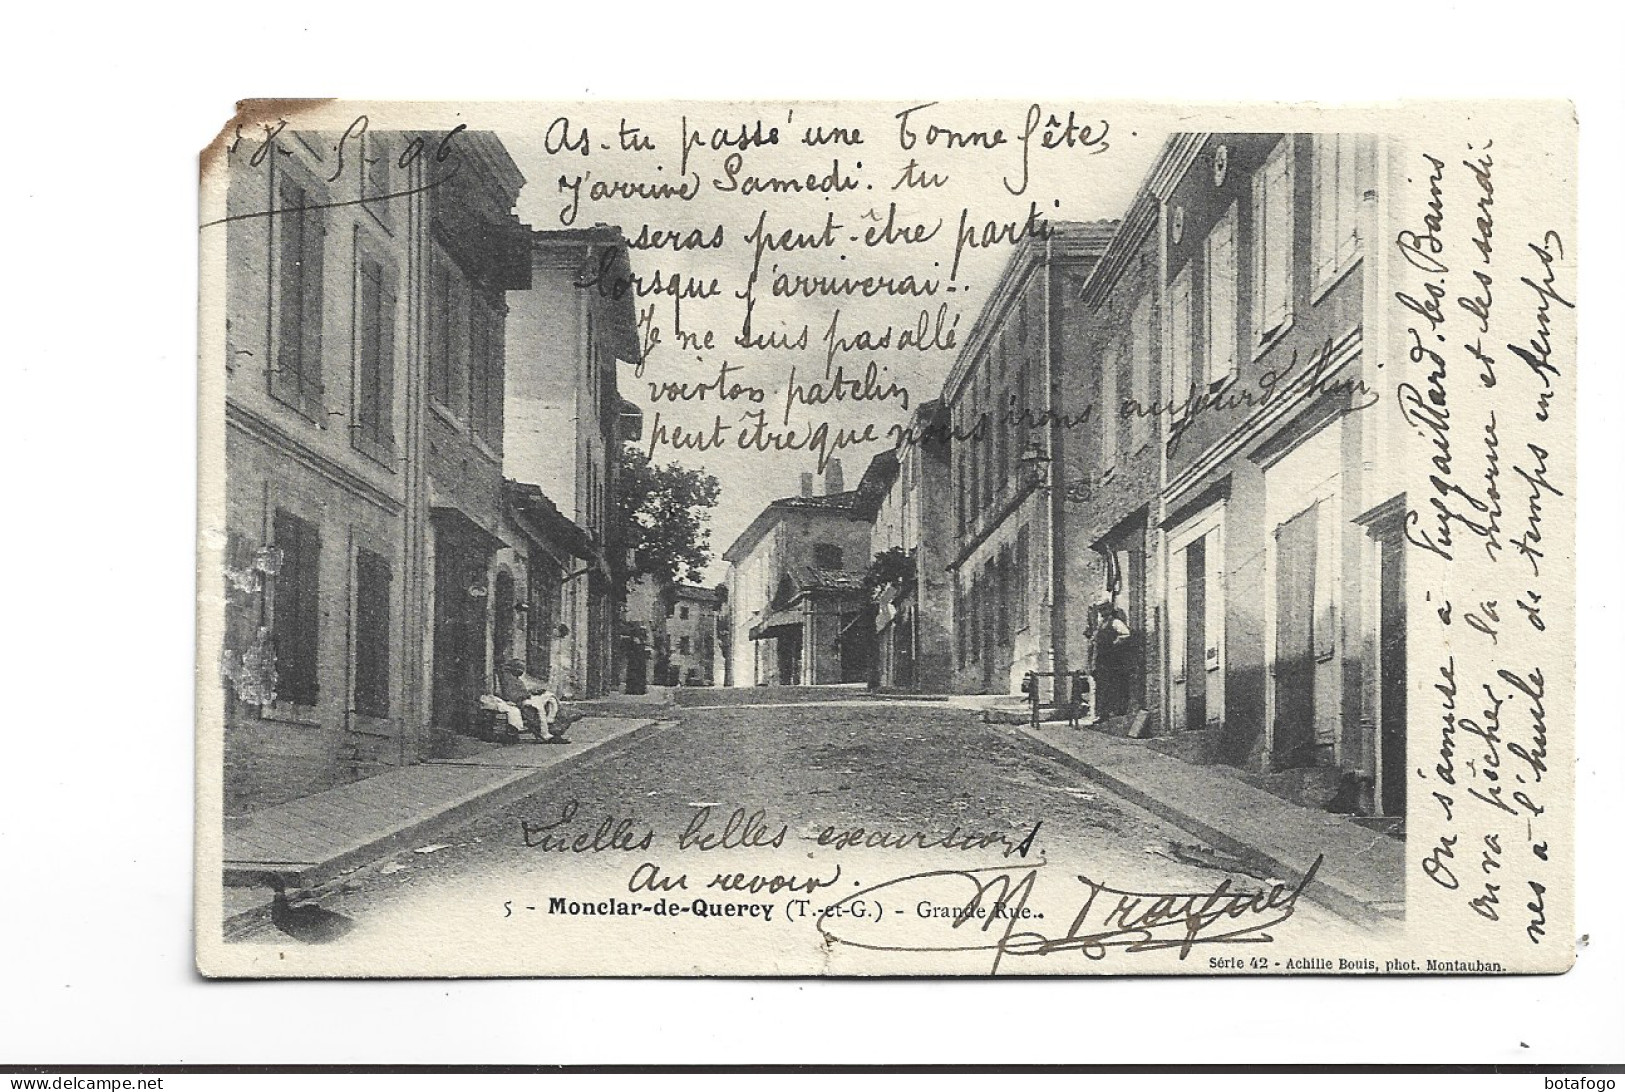 18-5-06
As-tu passé une bonne fête,
J'arrive Samedi. tu
seras peut-être parti
lorsque j'arriverai..
Je ne suis pas allé
voir ton patelin
peut être que nous irons aujourd'hui
Quelles belles excursions.
Au revoir.
M Traquet
5 - Monclar-de-Quercy (T.-et-G.) - Grande Rue..
Série 42 - Achille Bouis, phot. Montauban.
On s'amuse à Puygaillard. les. Bains
On va pêcher la morue et les sardi-
nes à l'huile de temps en temps,
botafogo